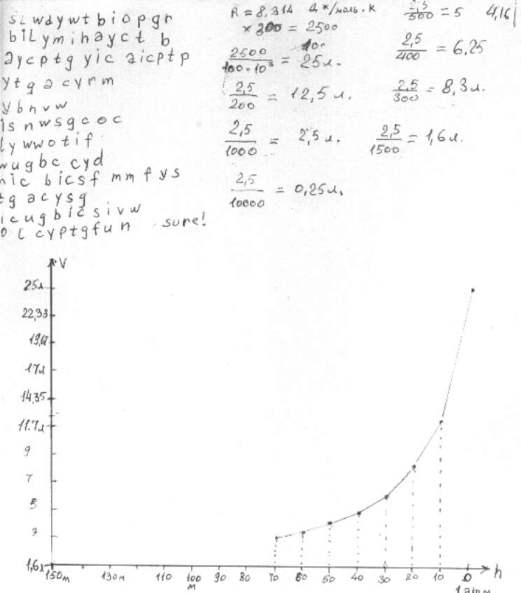 slwdywtbiopgr
bilymihayct b
aycptg yic aicptp
ytga cyrm
ybnvw
isnwsgcoc
lywwotif
wugbc cyd
nic bicsf mmfys
tg acysg
icugbicsivw
cyptgfun sure!
R = 8,314 Дж/моль·К
× 300 = 2500
2500/100·10³ = 25л.
2,5/200 = 12,5 л.
2,5/1000 = 2,5 л.
2,5/10000 = 0,25л.
2,5/500 = 5 4,16
2,5/400 = 6,25
2,5/300 = 8,3л.
2,5/1500 = 1,6л.
V
25л
22,33
17л
14,35
11.7л
9
7
5
3
1,6л
150м 130м 110 100м 90 80 70 60 50 40 30 20 10 0 h
1 атм